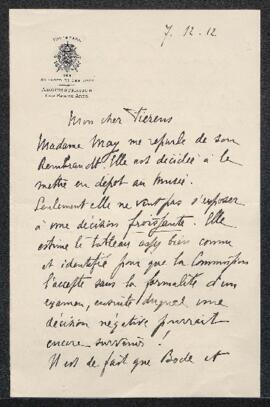 7.12.12
Mon cher Fierens
Madame May me reparle de son
Rembrandt. Elle est décidée à le
mettre en dépôt au Musée.
Seulement elle ne veut pas s'exposer
à une décision froissante. Elle
estime le tableau assez bien connu
et identifié pour que la Commission
l'accepte sans la formalité d'un
examen, ensuite duquel une
décision négative pourrait
encore survenir !
Il est de fait que Bode et